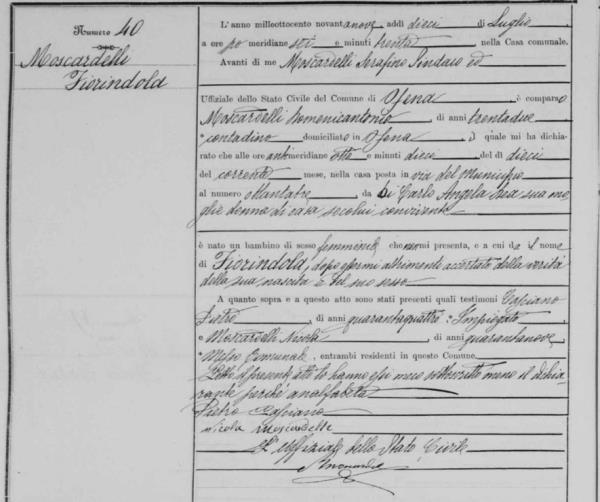 Numero 40
Moscardelli
Fiorindola
L'anno milleottocento novantanove, addì dieci di Luglio
a ore pomeridiane sei e minuti trenta nella Casa comunale.
Avanti di me Moscardelli Serafino Sindaco ed
Uffiziale dello Stato Civile del Comune di Ofena è comparso
Moscardelli Domenicantonio, di anni trentadue
contadino domiciliato in Ofena, il quale mi ha dichia-
rato che alle ore antimeridiane otto e minuti dieci del dì dieci
del corrente mese, nella casa posta in via del Municipio
al numero ottantatre, da Di Carlo Angela sua mo-
glie donna di casa secolui convivente
è nato un bambino di sesso femminile che mi presenta, e a cui dà il nome
di Fiorindola, dopo essermi altrimenti accertato della verità
della sua nascita e del suo sesso
A quanto sopra e a questo atto sono stati presenti quali testimoni
Pietro, di anni quarantaquattro Impiegato
e Moscardelli Nicola di anni quarantanove,
Messo Comunale, entrambi residenti in questo Comune.
Letto il presente atto lo hanno essi meco sottoscritto meno il dichia-
rante perché analfabeta
Pietro
Nicola Moscardelli
L'Uffiziale dello Stato Civile